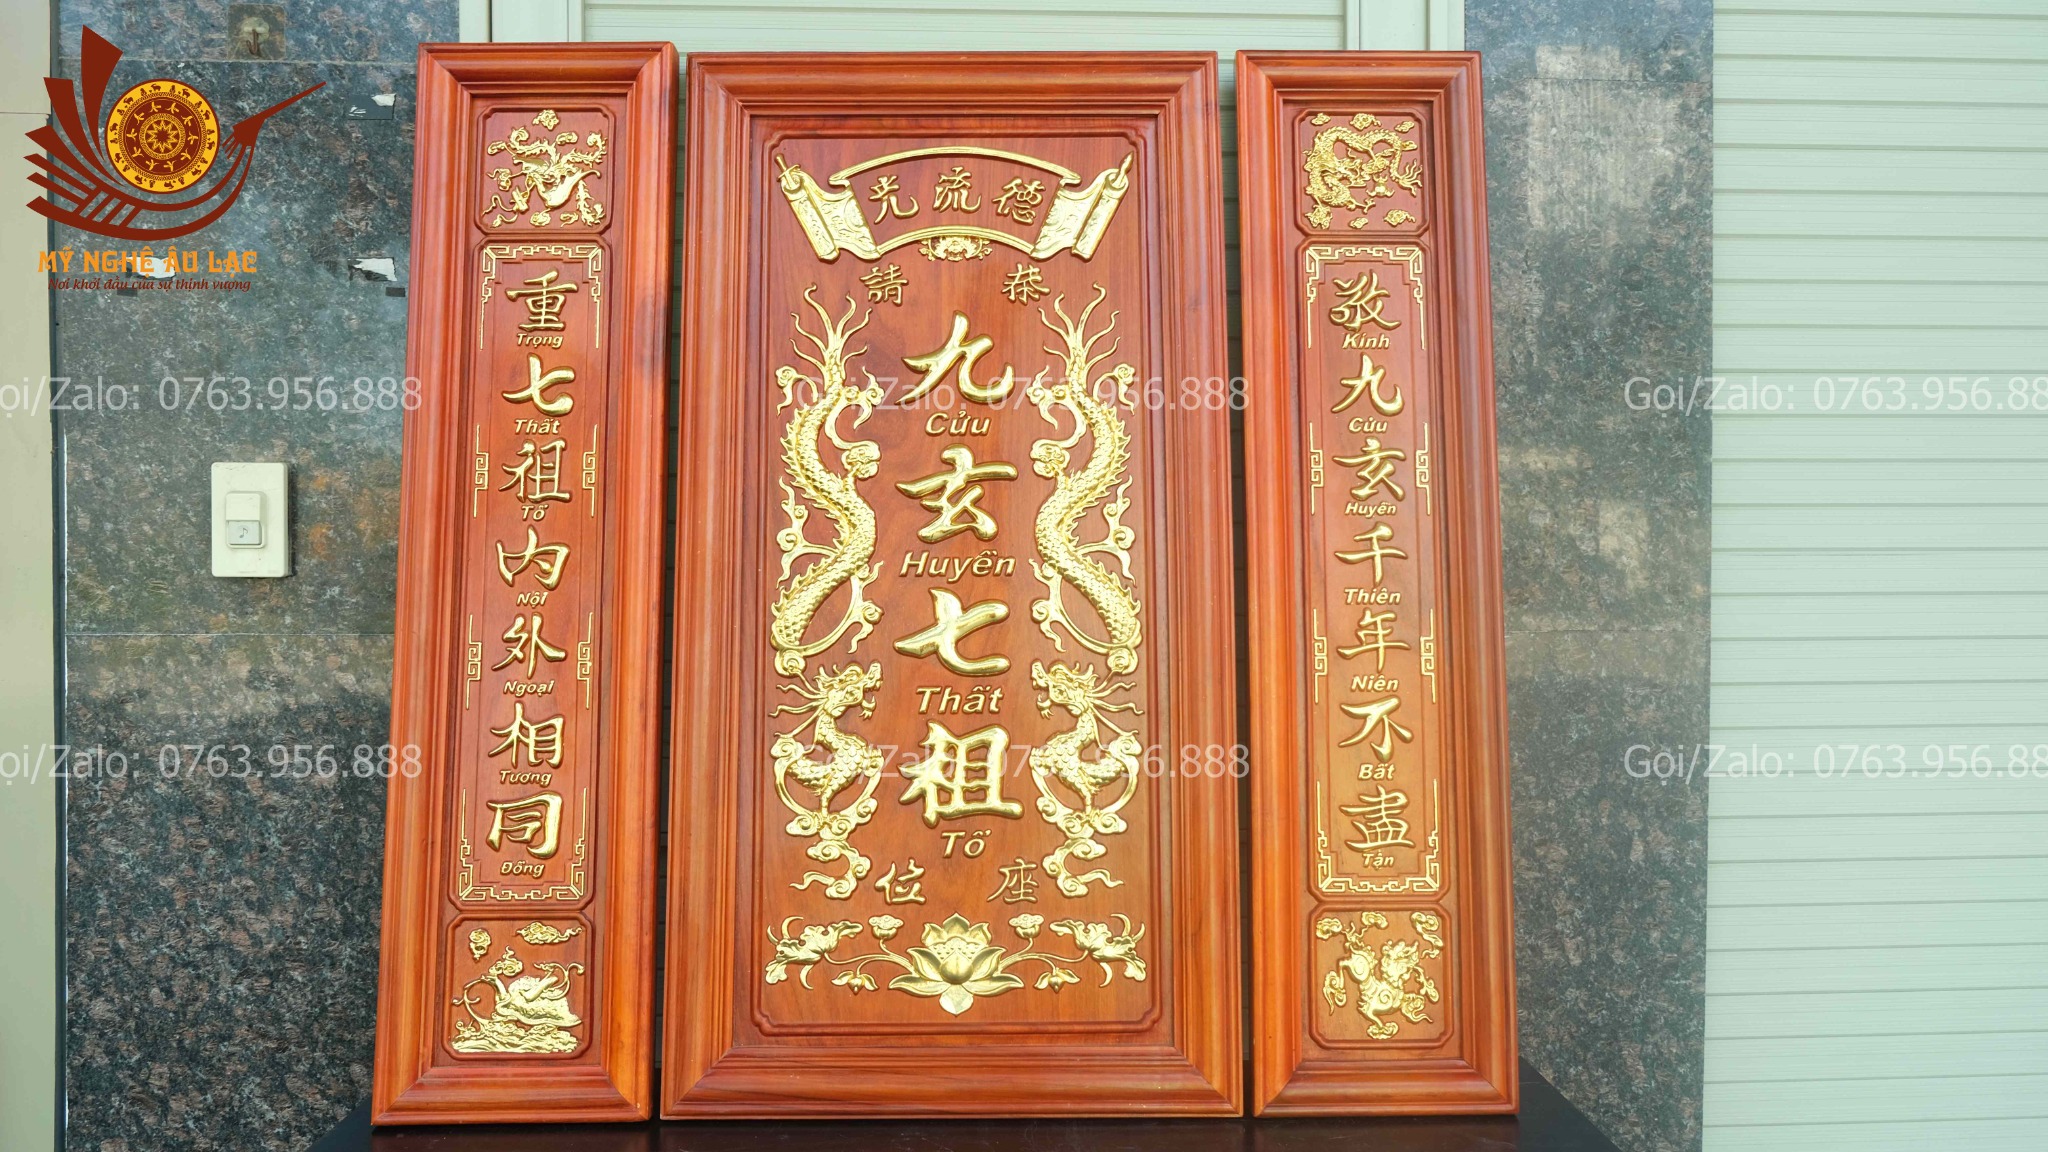 MỸ NGHỆ ÂU LẠC
Nơi khởi đầu của sự thịnh vượng
德流光
恭請
九
Cửu
玄
Huyền
七
Thất
祖
Tổ
座位
敬
Kính
九
Cửu
玄
Huyền
千
Thiên
年
Niên
不
Bất
盡
Tận
重
Trọng
七
Thất
祖
Tổ
内
Nội
外
Ngoại
相
Tương
同
Đồng
ọi/Zalo: 0763.956.888
Gọi/Zalo: 0763.956.888
Gọi/Zalo: 0763.956.888
ọi/Zalo: 0763.956.888
Gọi/Zalo: 0763.956.888
Gọi/Zalo: 0763.956.888